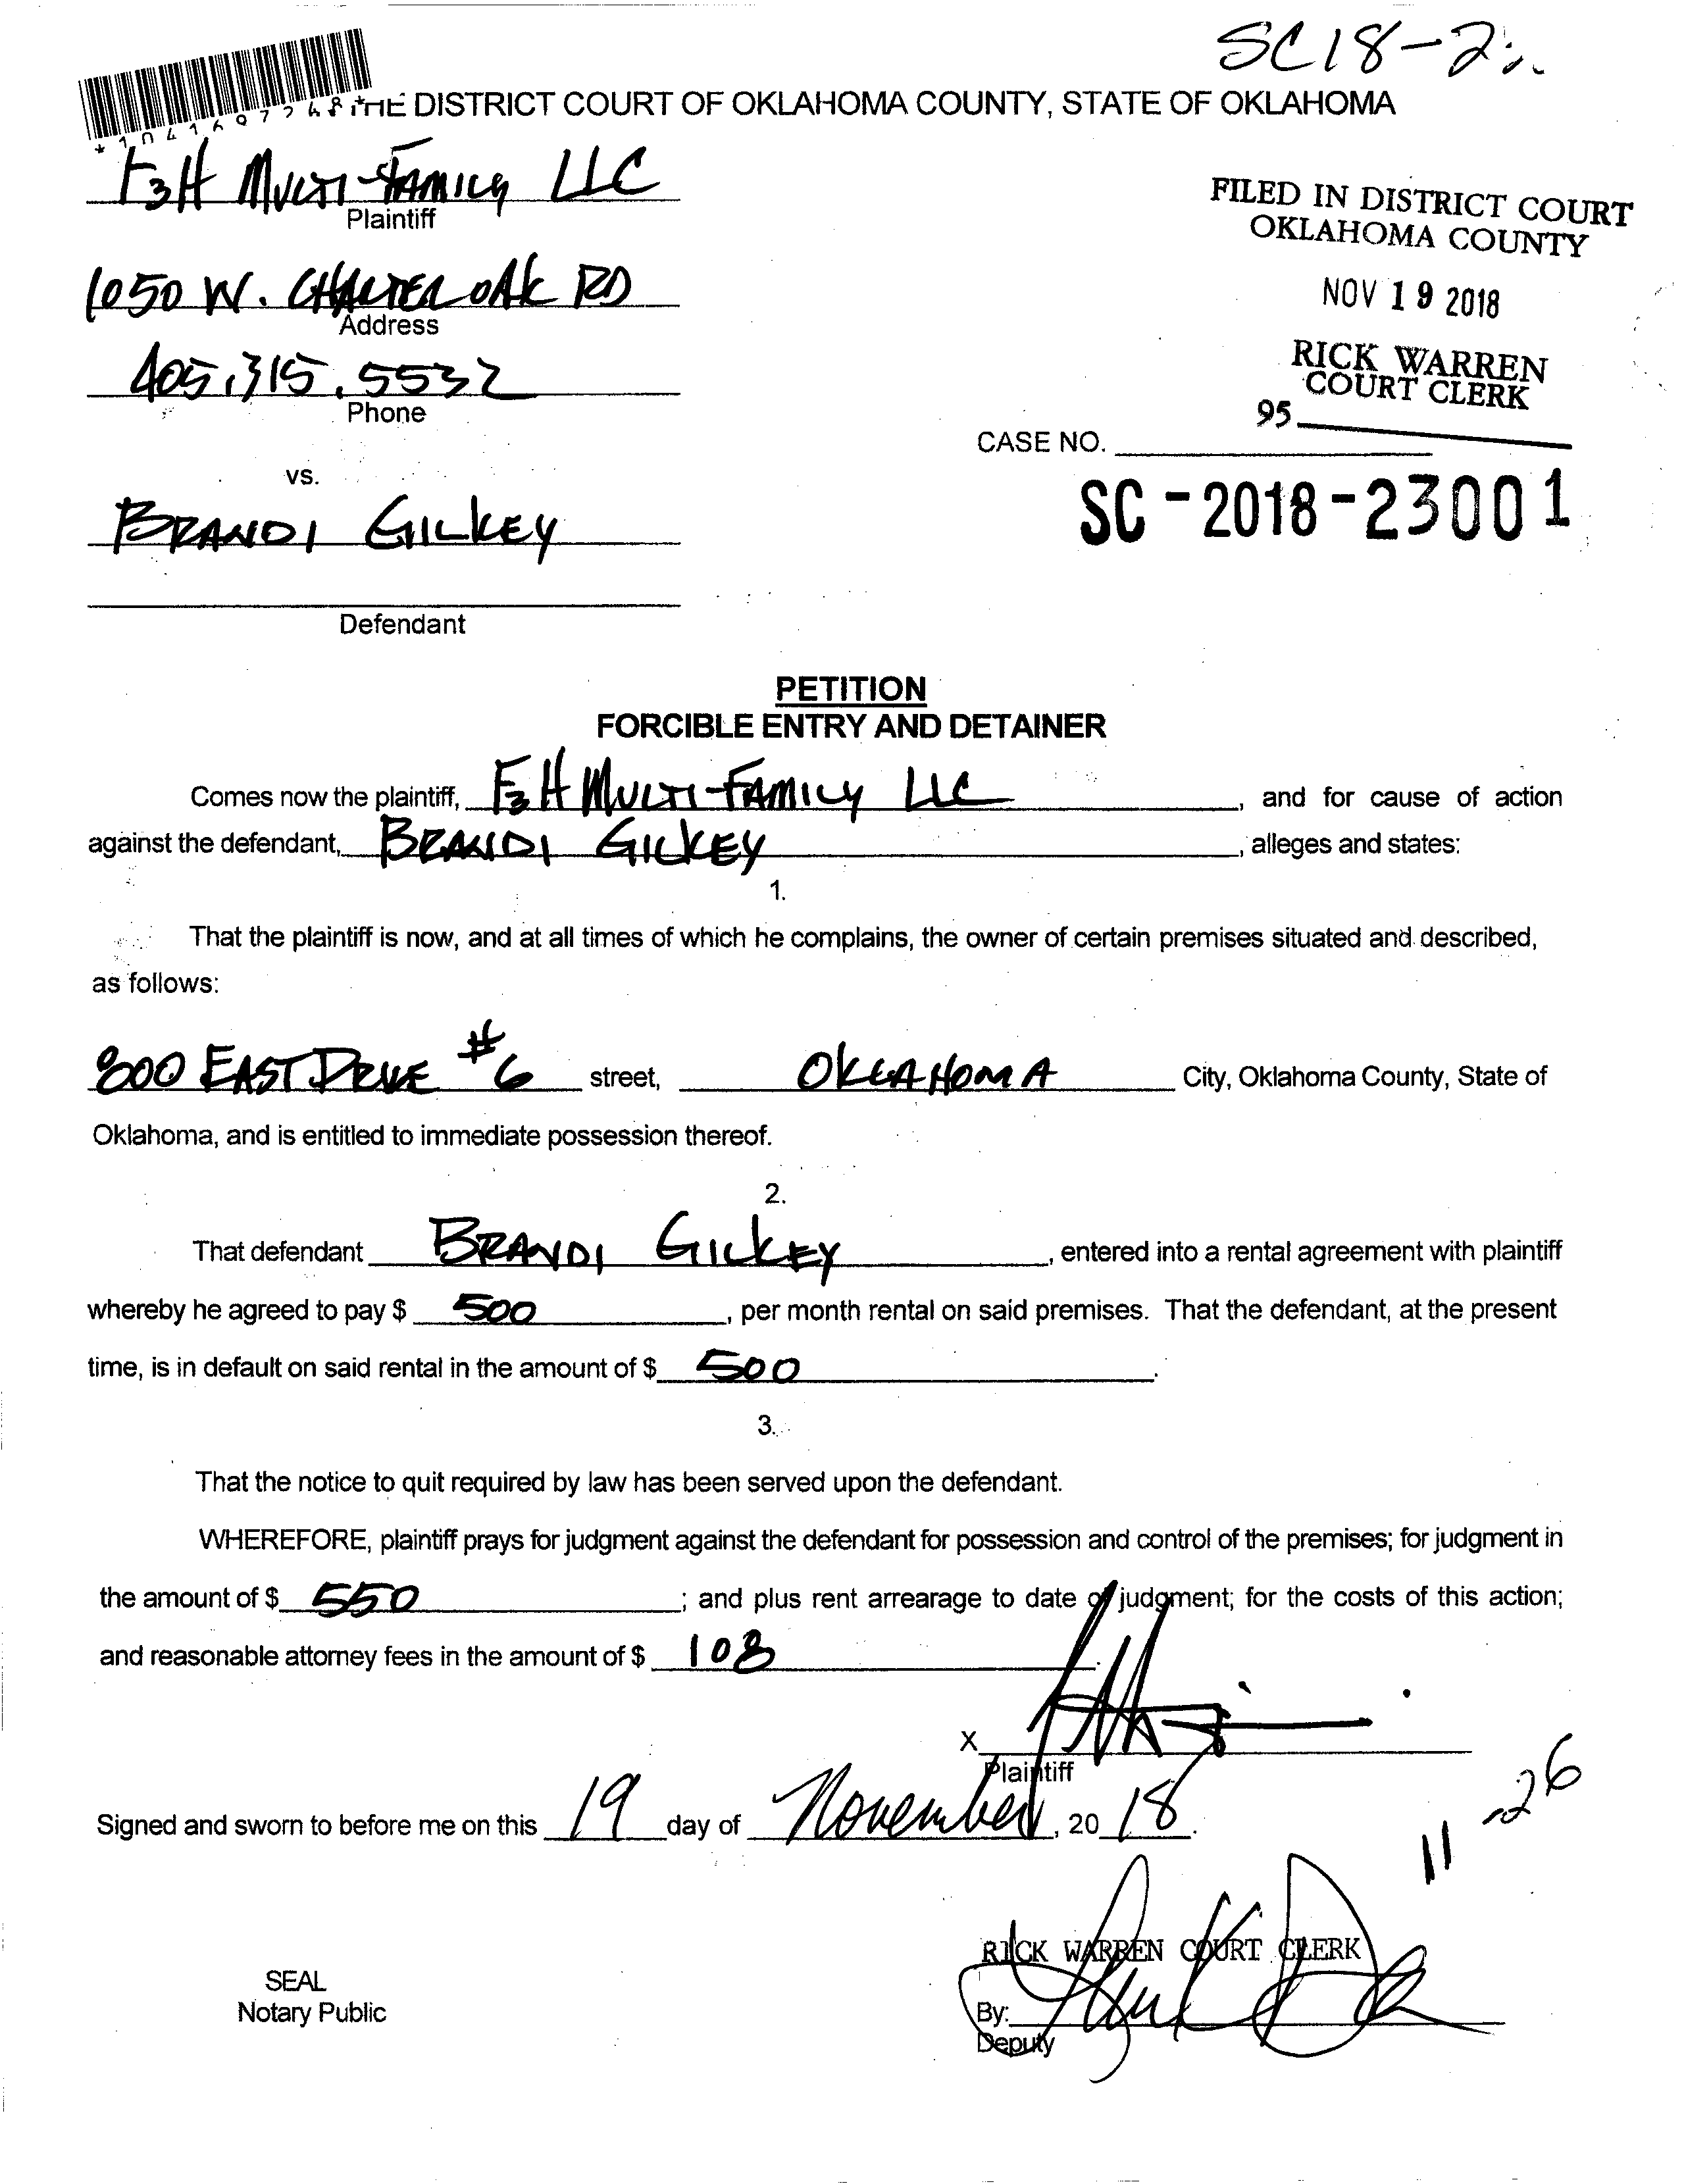 SC18-2
THE DISTRICT COURT OF OKLAHOMA COUNTY, STATE OF OKLAHOMA
F3H MULTI-FAMILY LLC
Plaintiff
FILED IN DISTRICT COURT
OKLAHOMA COUNTY
1050 W. CHARTER OAK RD
Address
NOV 19 2018
405.315.5532
Phone
RICK WARREN
COURT CLERK
95
CASE NO.
vs.
SC-2018-23001
BRANDI GILKEY
Defendant
PETITION
FORCIBLE ENTRY AND DETAINER
Comes now the plaintiff, F3H MULTI-FAMILY LLC, and for cause of action
against the defendant, BRANDI GILKEY, alleges and states:
1.
That the plaintiff is now, and at all times of which he complains, the owner of certain premises situated and described,
as follows:
800 EAST DRIVE #6 street, OKLAHOMA City, Oklahoma County, State of
Oklahoma, and is entitled to immediate possession thereof.
2.
That defendant BRANDI GILKEY, entered into a rental agreement with plaintiff
whereby he agreed to pay $ 500, per month rental on said premises. That the defendant, at the present
time, is in default on said rental in the amount of $ 500.
3.
That the notice to quit required by law has been served upon the defendant.
WHEREFORE, plaintiff prays for judgment against the defendant for possession and control of the premises; for judgment in
the amount of $ 550; and plus rent arrearage to date of judgment; for the costs of this action;
and reasonable attorney fees in the amount of $ 108.
X
Plaintiff
Signed and sworn to before me on this 19 day of November, 20 18.
11-26
RICK WARREN COURT CLERK
SEAL
Notary Public
By:
Deputy